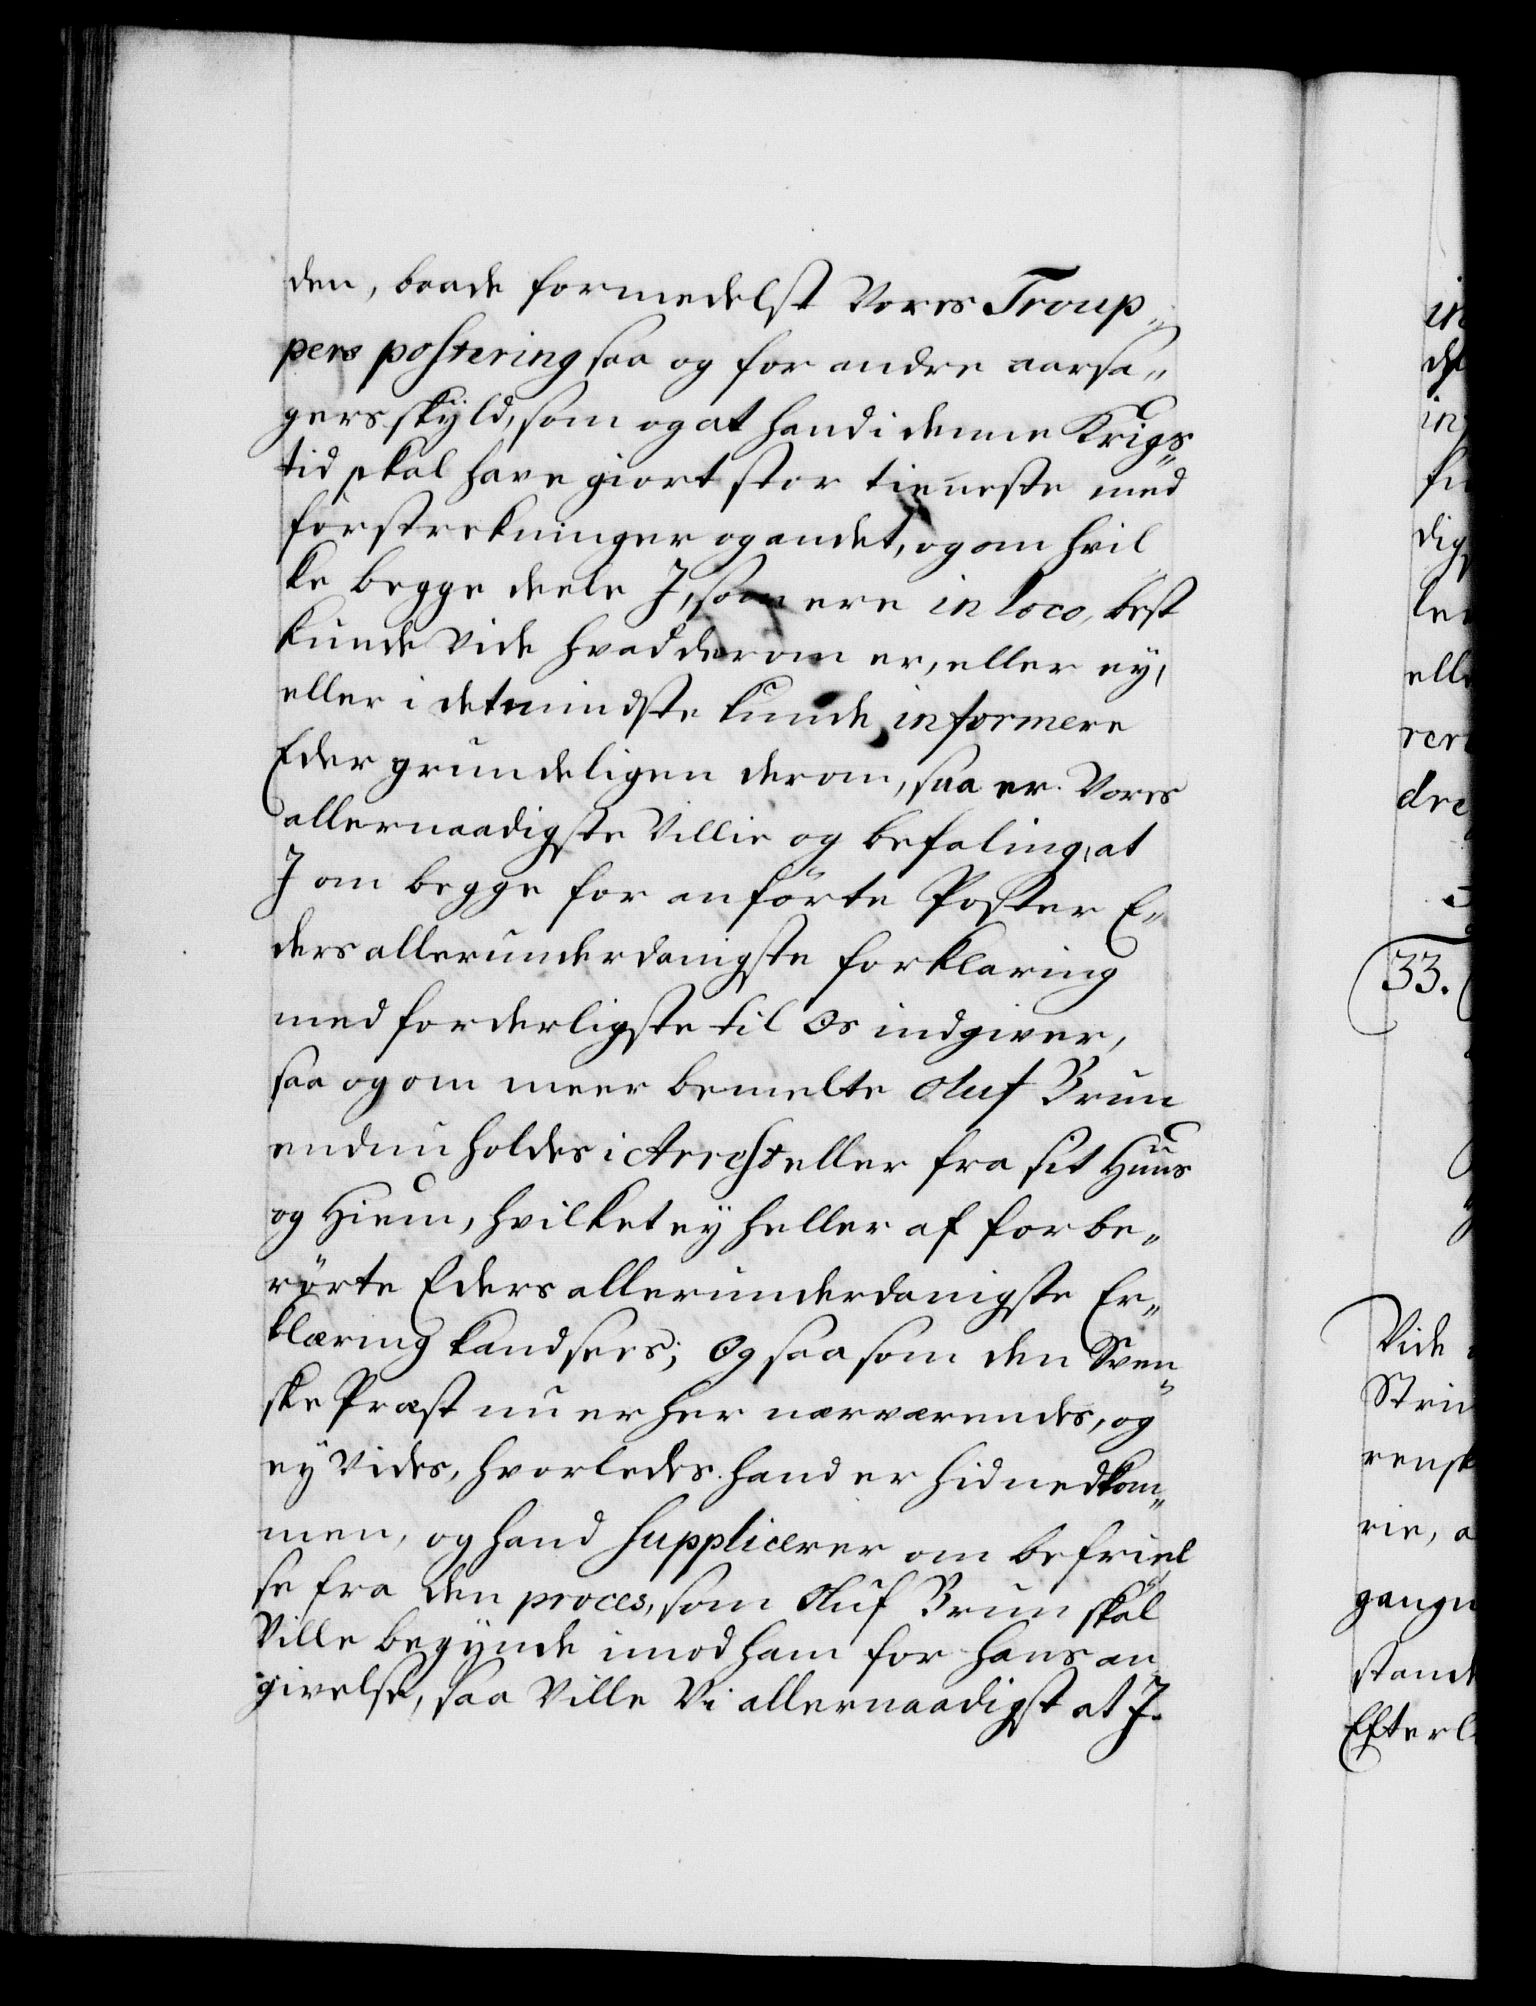 den, baade formedelst Vores Troup„
pers postering saa og for andre aarsa„
gers skÿld, som og at hand i denne Krigs„
tid skal have giort stor tieneste med
forstrekninger og andet, og om hvil„
ke begge deele J, som ere in loco, best
kunde vide hvad derom er, eller eÿ,
eller i det mindste kunde informere
Eder grundeligen derom, saa er Vores
allernaadigste Villie og befaling, at
J om begge for anførte Poster E„
ders allerunderdanigste forklaring
med forderligste til Os indgiver,
saa og om meer bemelte Oluf Brun
endnu holdes i Arrest eller fra sit Huus
og Hiem, hvilket eÿ heller af forbe„
rørte Eders allerunderdanigste Er„
klæring kand sees; Og saasom den Sven„
ske Præst nu er her nærværendes, og
eÿ vides, hvorledes hand er hid nedkom„
men, og hand supplicerer om befriel„
se fra den proces, som Oluf Brun skal
Ville begÿnde imod ham for hans an„
givelse, saa Ville Vi allernaadigst at J.
in
in
dig
elle
rer
dre
33.
Vide
rensk
rie, a
gange
stand
Efterl